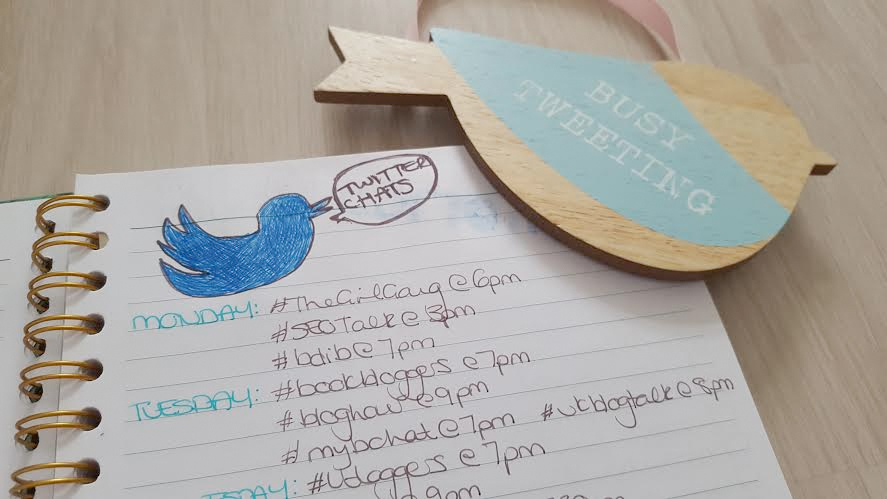 BUSY
TWEETING
TWITTER
CHATS
MONDAY: #TheGirlGang@6pm
#SEOTalk@
#bdib@7pm
TUESDAY: #bookbloggers@7pm
@9pm
#mybchat@7pm #ukblogtalk@8pm
@7pm
9pm